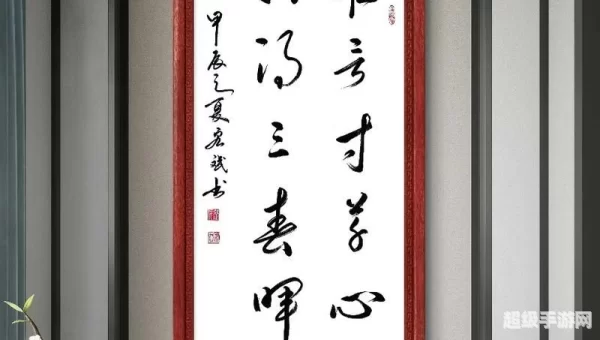 言寸草心
得三春晖
甲辰之夏宏斌书
超级手游网